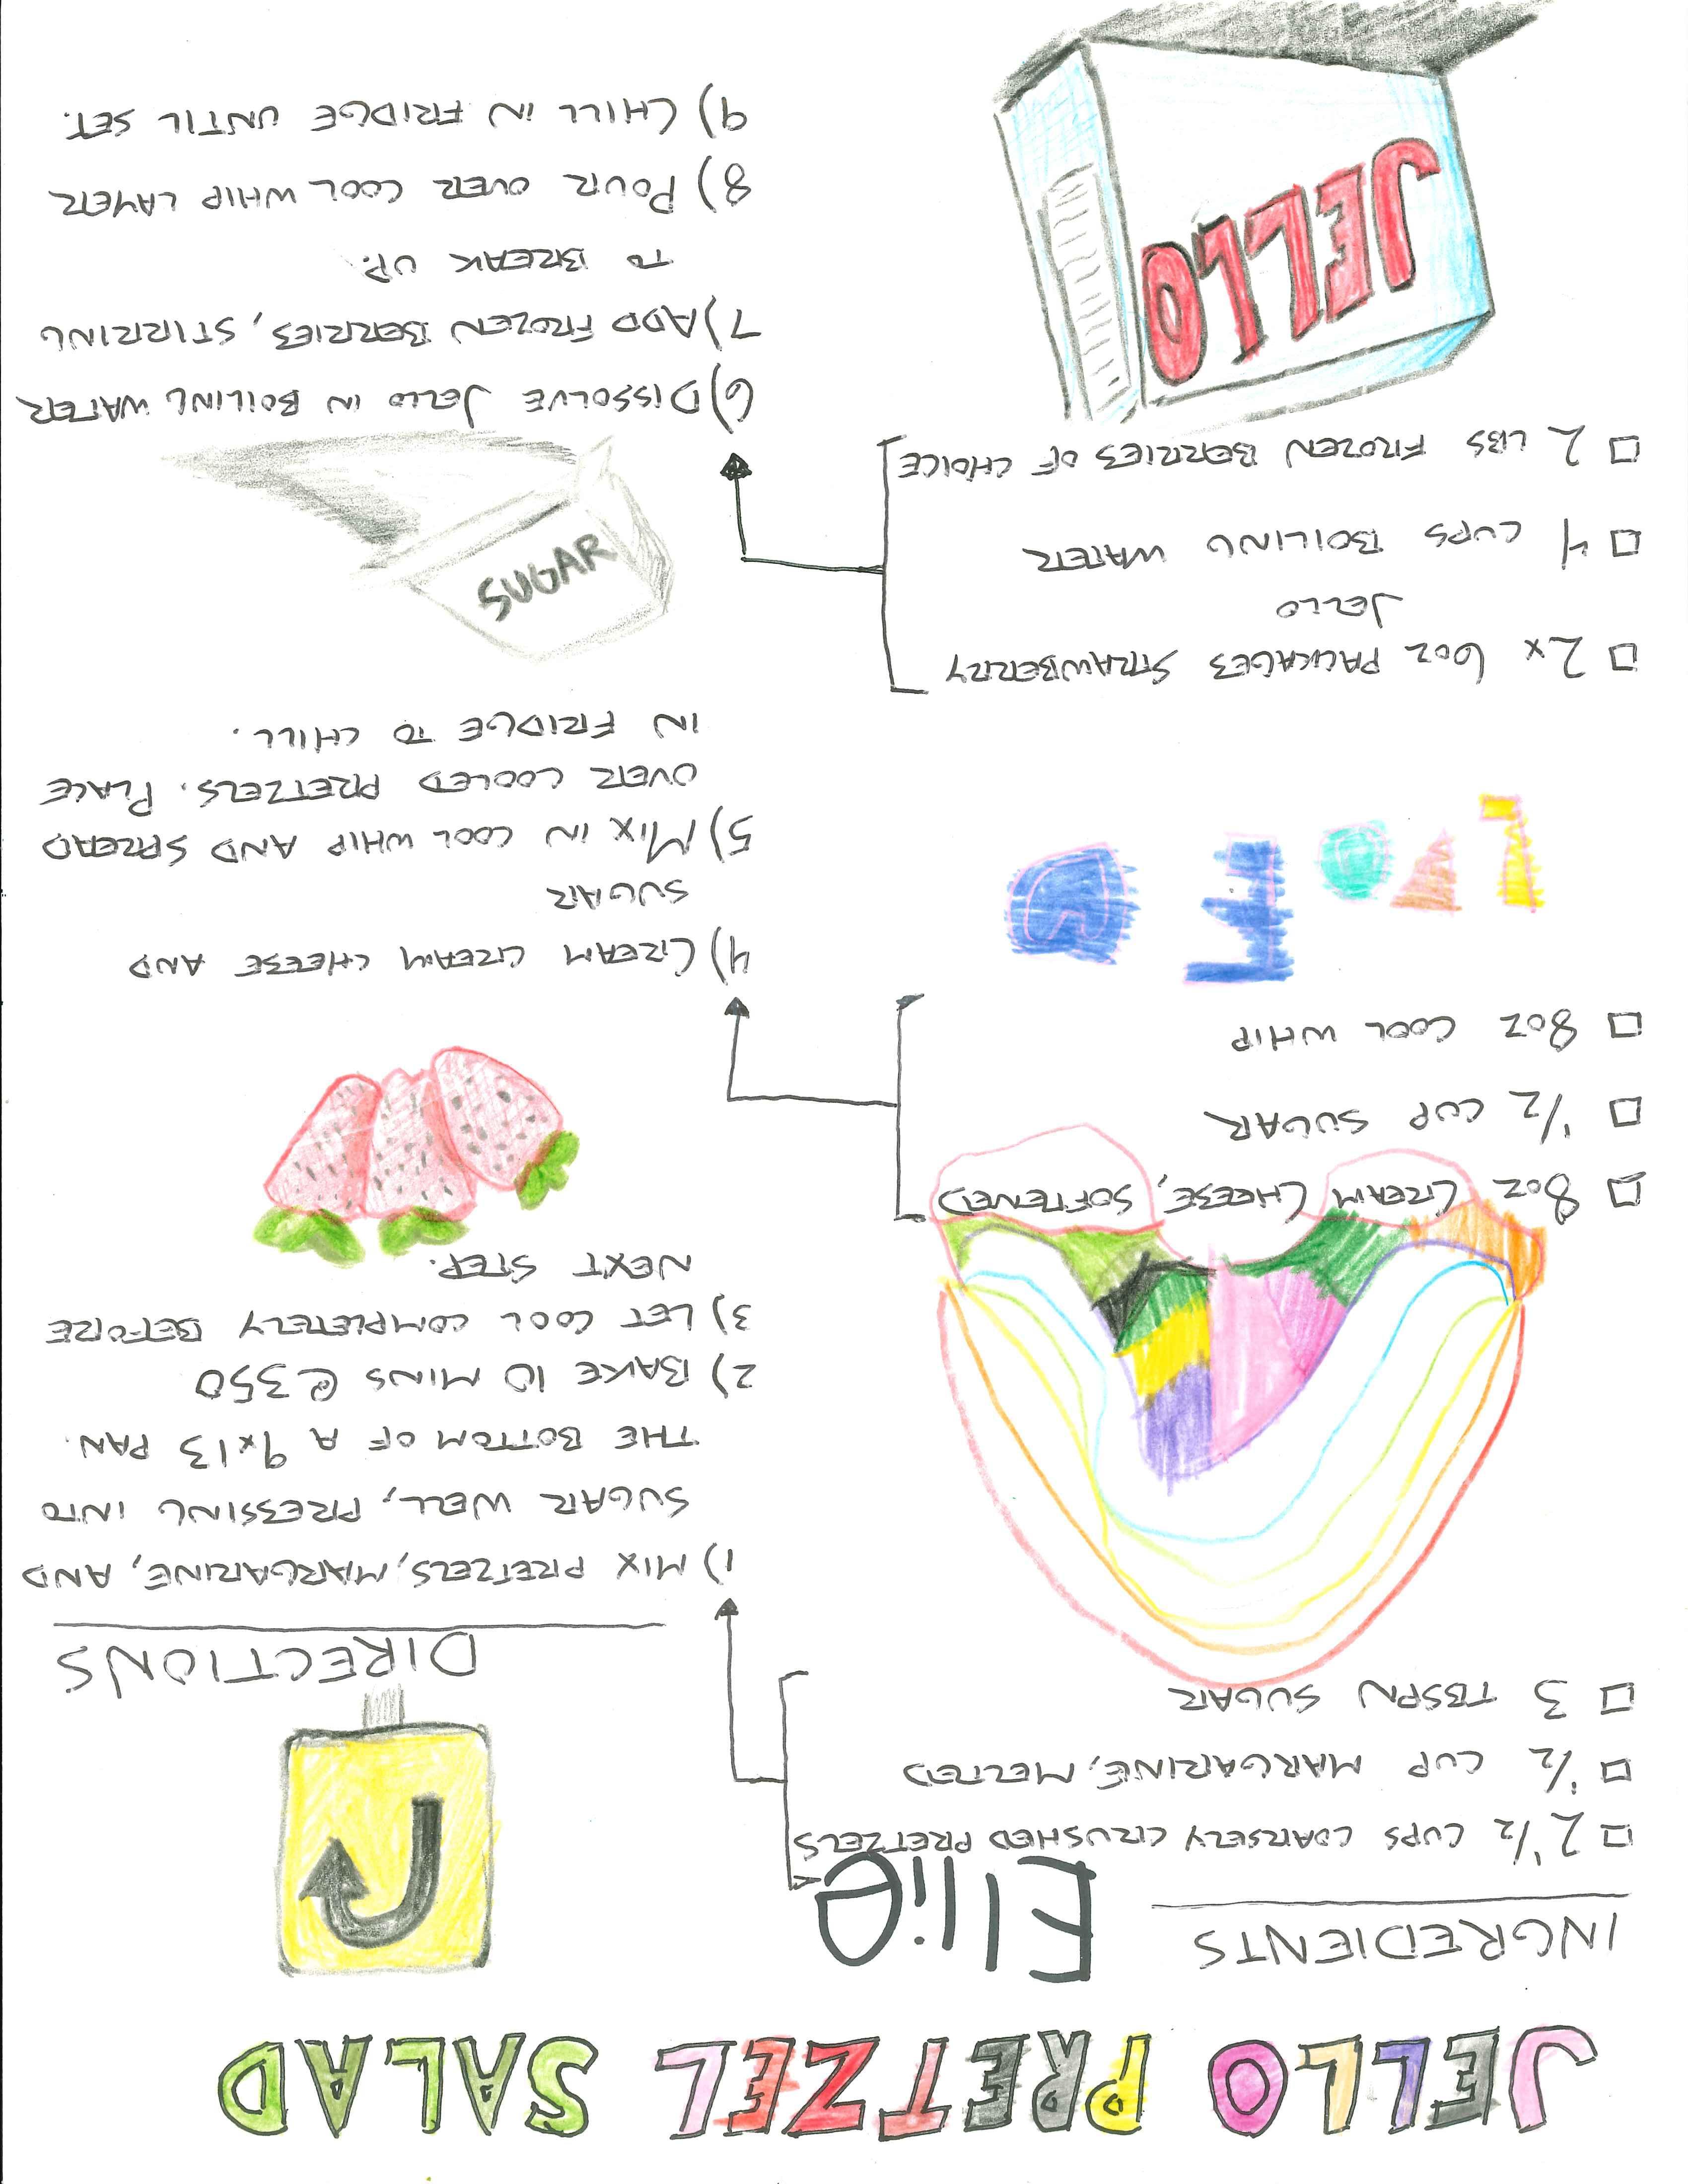 JELLO PRETZEL SALAD
INGREDIENTS
Ellie
□ 2 1/2 CUPS COARSELY CRUSHED PRETZELS
□ 1/2 CUP MARGARINE, MELTED
□ 3 TBSPN SUGAR
□ 8oz CREAM CHEESE, SOFTENED
□ 1/2 CUP SUGAR
□ 8oz COOL WHIP
□ 2x 6oz PACKAGES STRAWBERRY
JELLO
□ 4 CUPS BOILING WATER
□ 2 LBS FROZEN BERRIES OF CHOICE
JELLO
DIRECTIONS
1) MIX PRETZELS, MARGARINE, AND
SUGAR WELL, PRESSING INTO
THE BOTTOM OF A 9x13 PAN.
2) BAKE 10 MINS @ 350
3) LET COOL COMPLETELY BEFORE
NEXT STEP.
4) CREAM CREAM CHEESE AND
SUGAR
5) MIX IN COOL WHIP AND SPREAD
OVER COOLED PRETZELS. PLACE
IN FRIDGE TO CHILL.
SUGAR
6) DISSOLVE JELLO IN BOILING WATER
7) ADD FROZEN BERRIES, STIRRING
TO BREAK UP.
8) POUR OVER COOL WHIP LAYER
9) CHILL IN FRIDGE UNTIL SET.